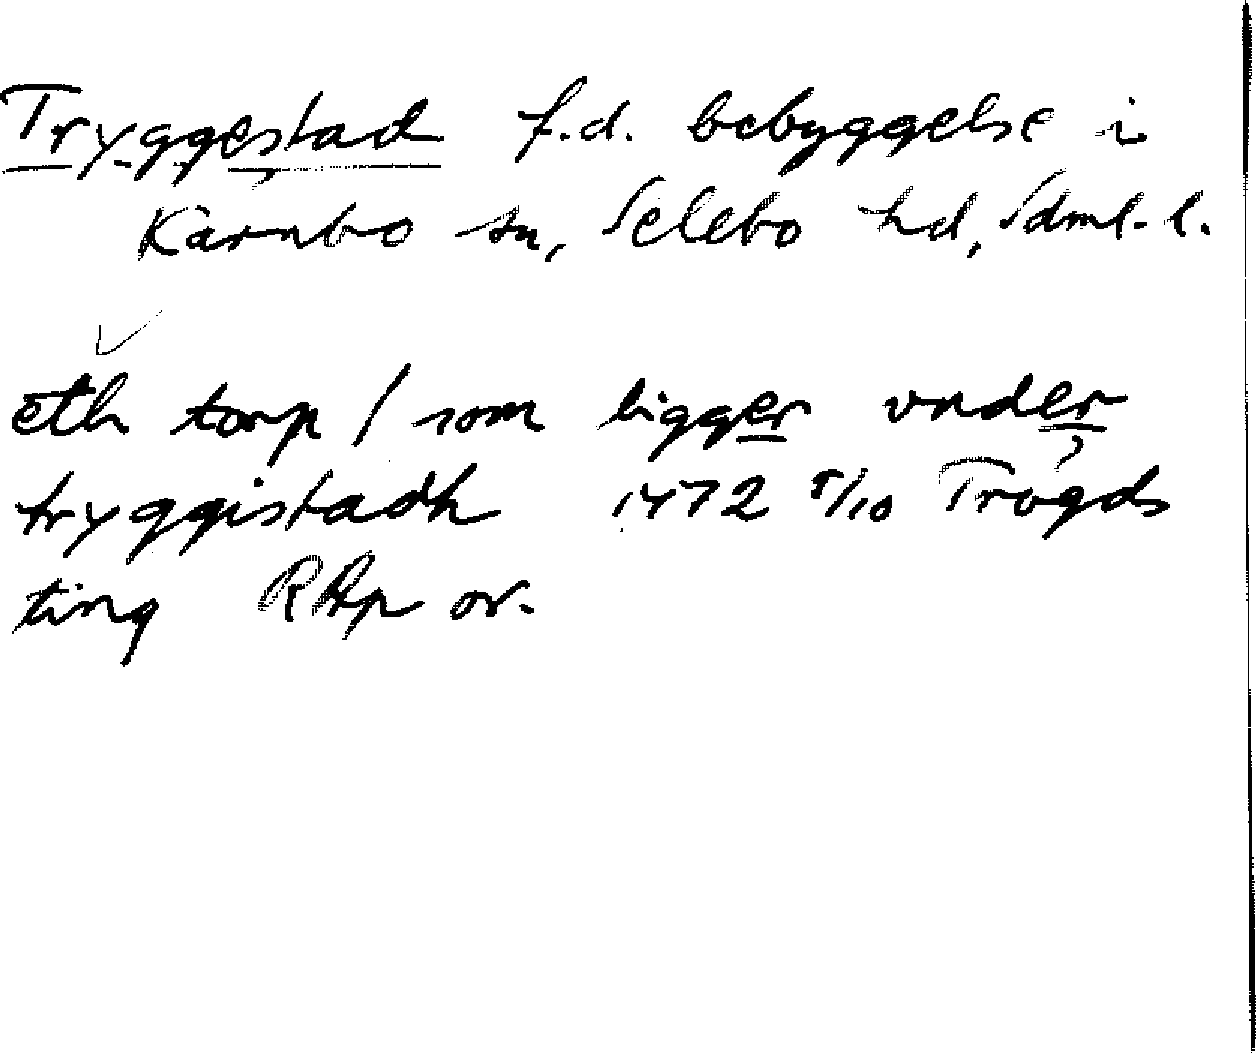 Tryggestad f.d. bebyggelse i
Kärnbo sn, Selebo hd, Sdml. l.
eth torp / som ligger vnder
tryggistadh 1472 5/10 Trögds
ting RAp or.